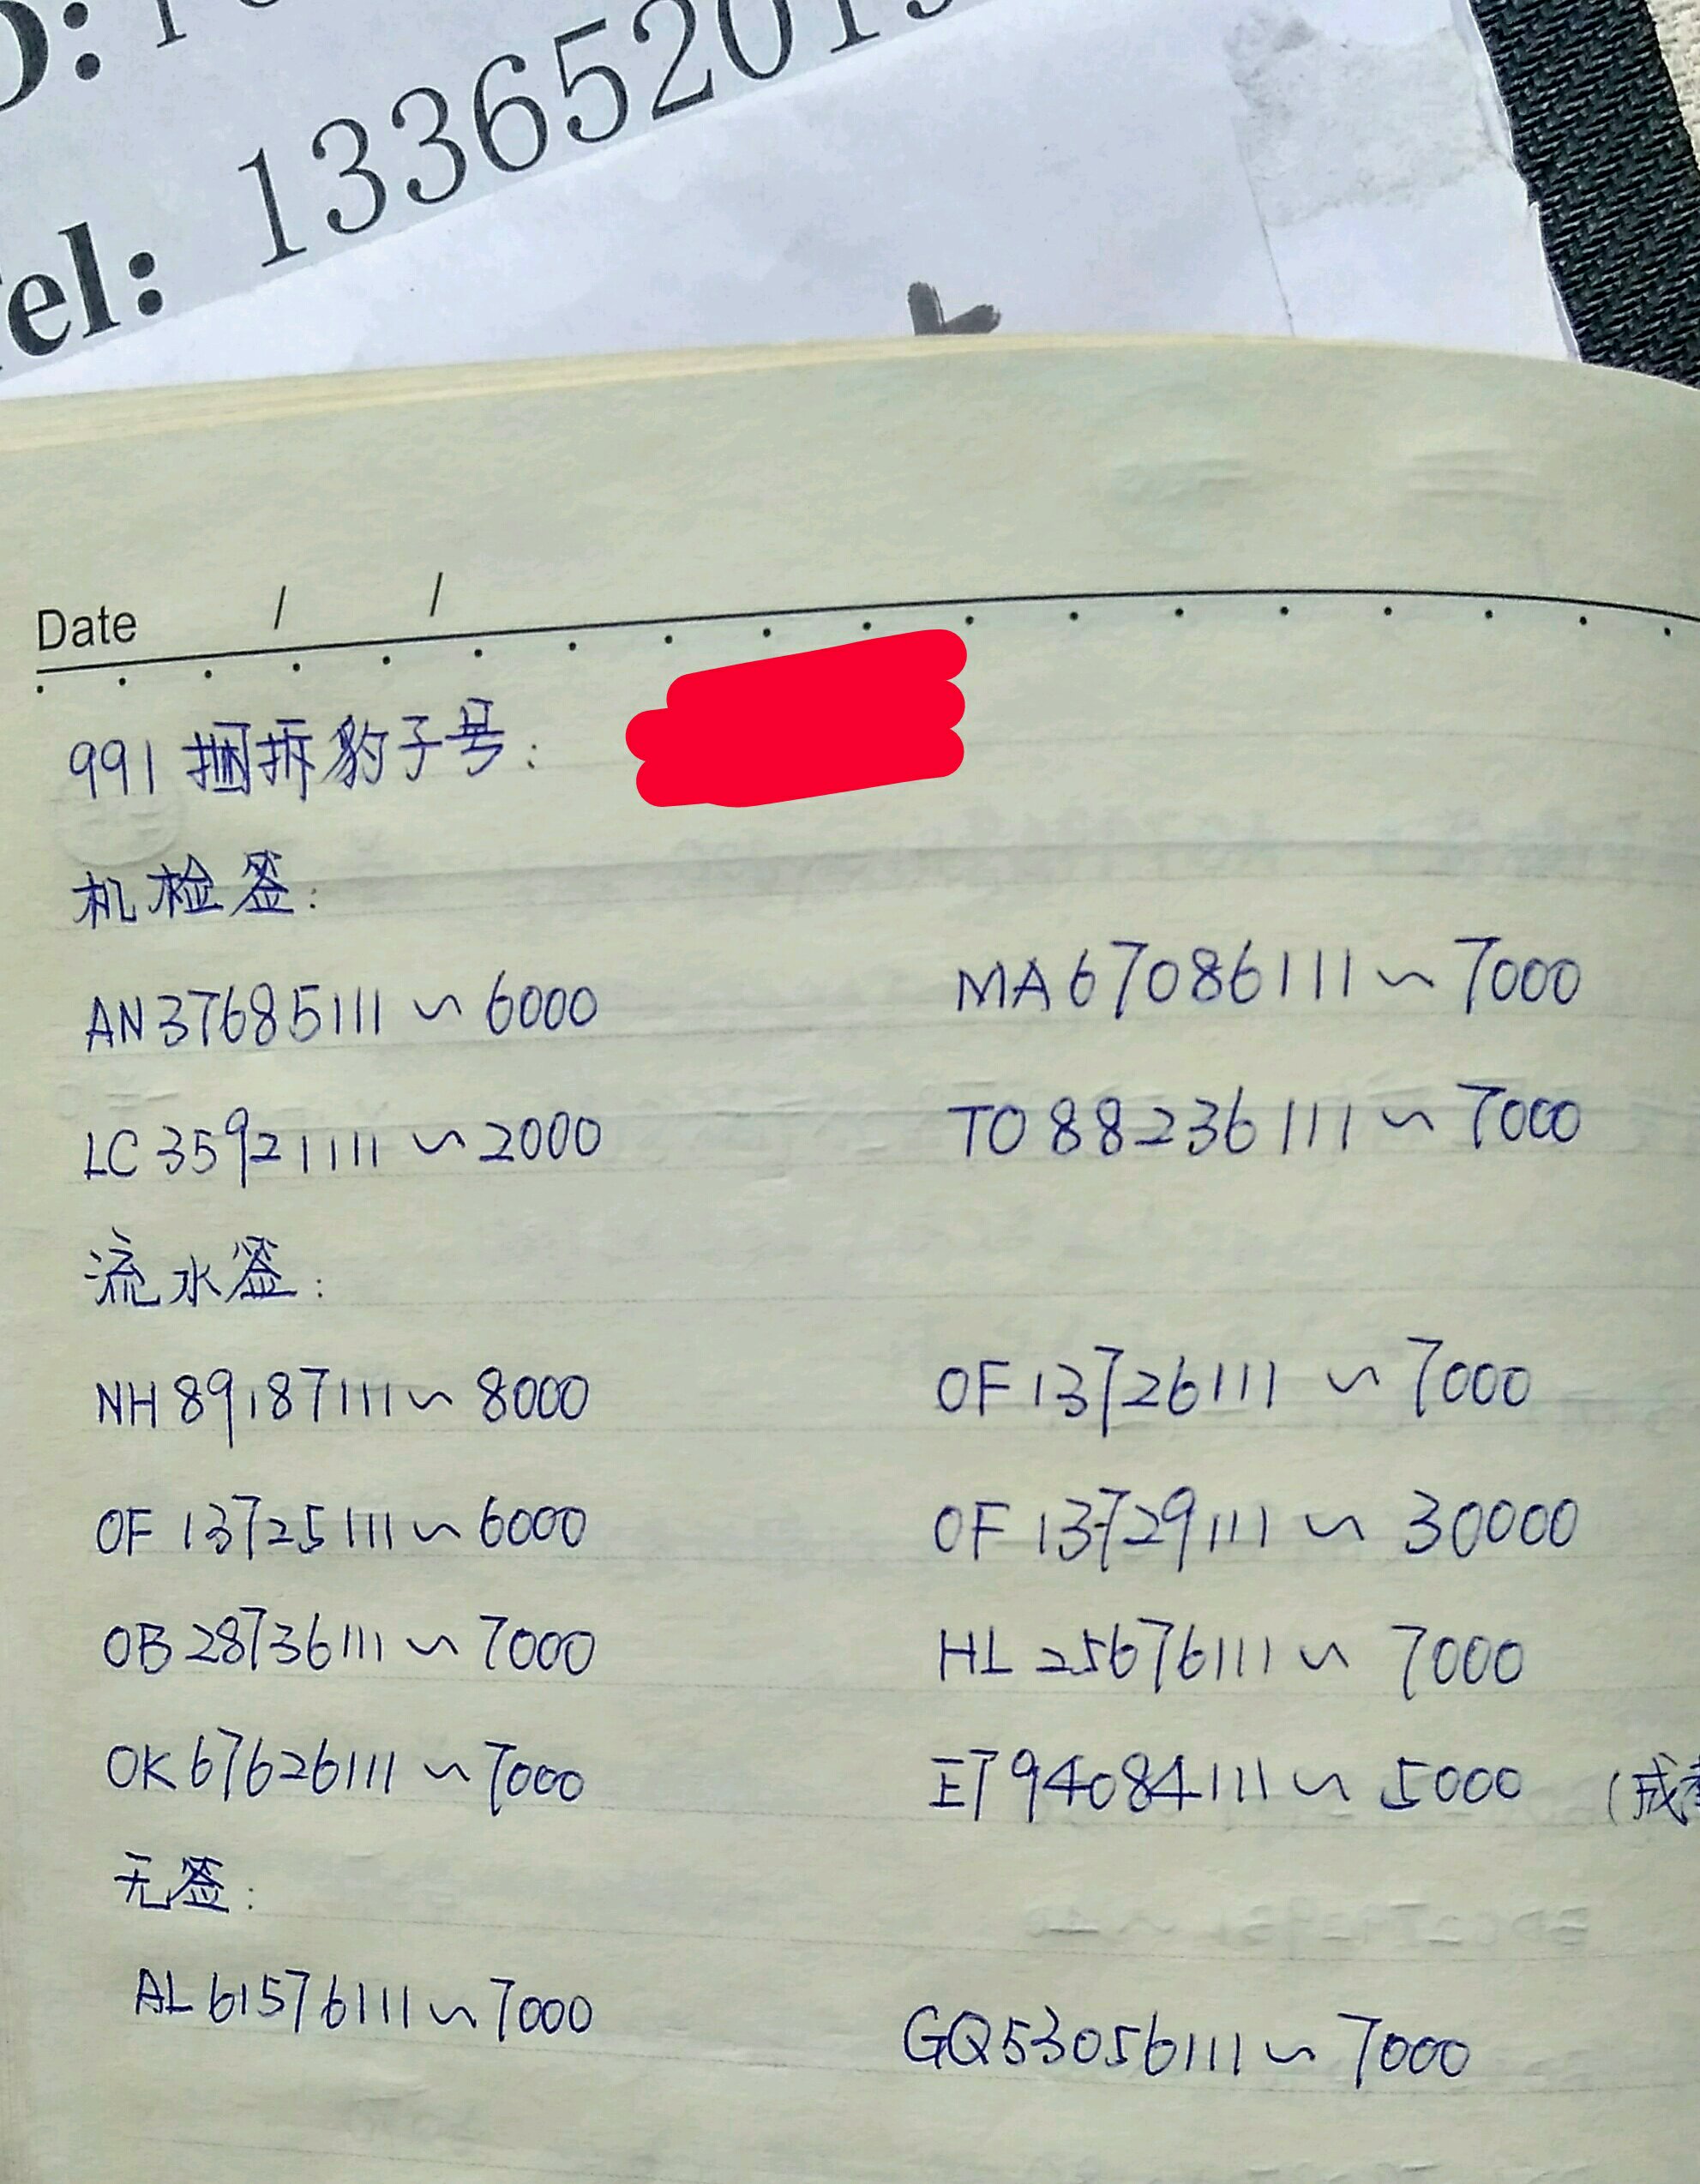 Tel: 13365201
Date / /
991捆拆豹子号:
机检签:
AN37685111~6000 MA67086111~7000
LC35921111~2000 TO88236111~7000
流水签:
NH89187111~8000 OF13726111~7000
OF13725111~6000 OF13729111~30000
OB28736111~7000 HL25676111~7000
OK67626111~7000 ET94084111~5000 (成
无签:
AL61576111~7000 GQ53056111~7000